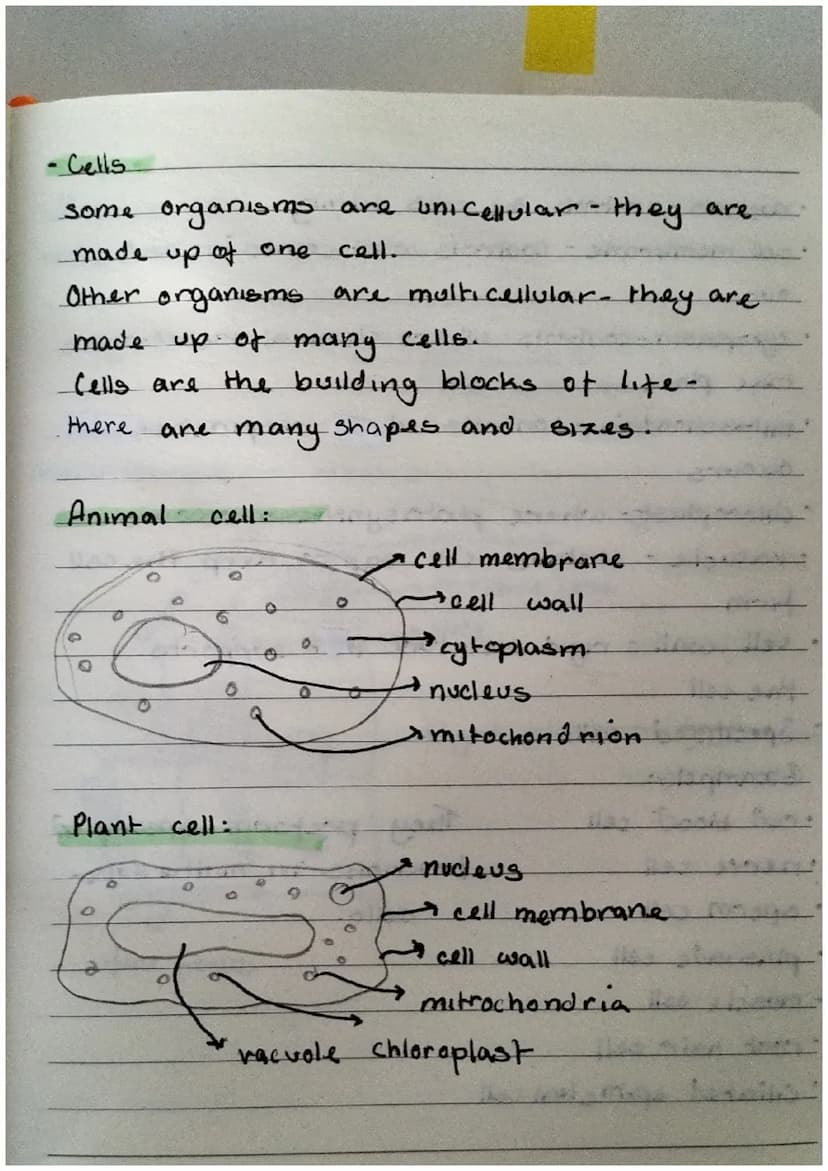 - Cells
some organisms are unicellular - they are
made up of one cell.
Other organisms are multicellular - they are
made up of many cells.
Cells are the building blocks of life -
there are many shapes and sizes.
Animal cell:
cell membrane
cell wall
cytoplasm
nucleus
mitochondrion
Plant cell:
nucleus
cell membrane
cell wall
mitrochondria
vacuole chloroplast